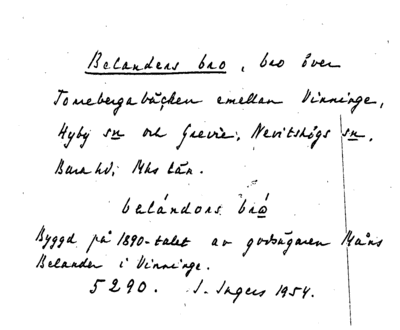 Belanders bro, bro över
Torrebergabäcken emellan Vinninge,
Hyby sn och Grevie, Nevitshögs sn,
Bara hd, Mhs län.
belándors brä́
Byggd på 1890-talet av godsägaren Måns
Belander i Vinninge.
5290. I. Ingers 1954.